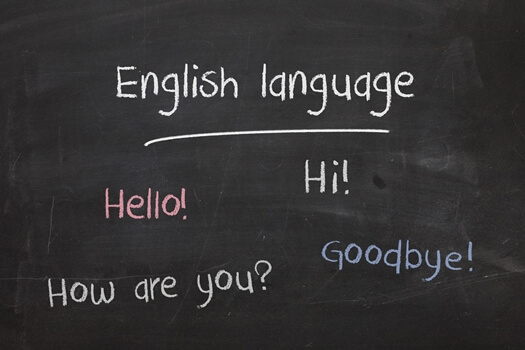 English language
Hi!
Hello!
Goodbye!
How are you?